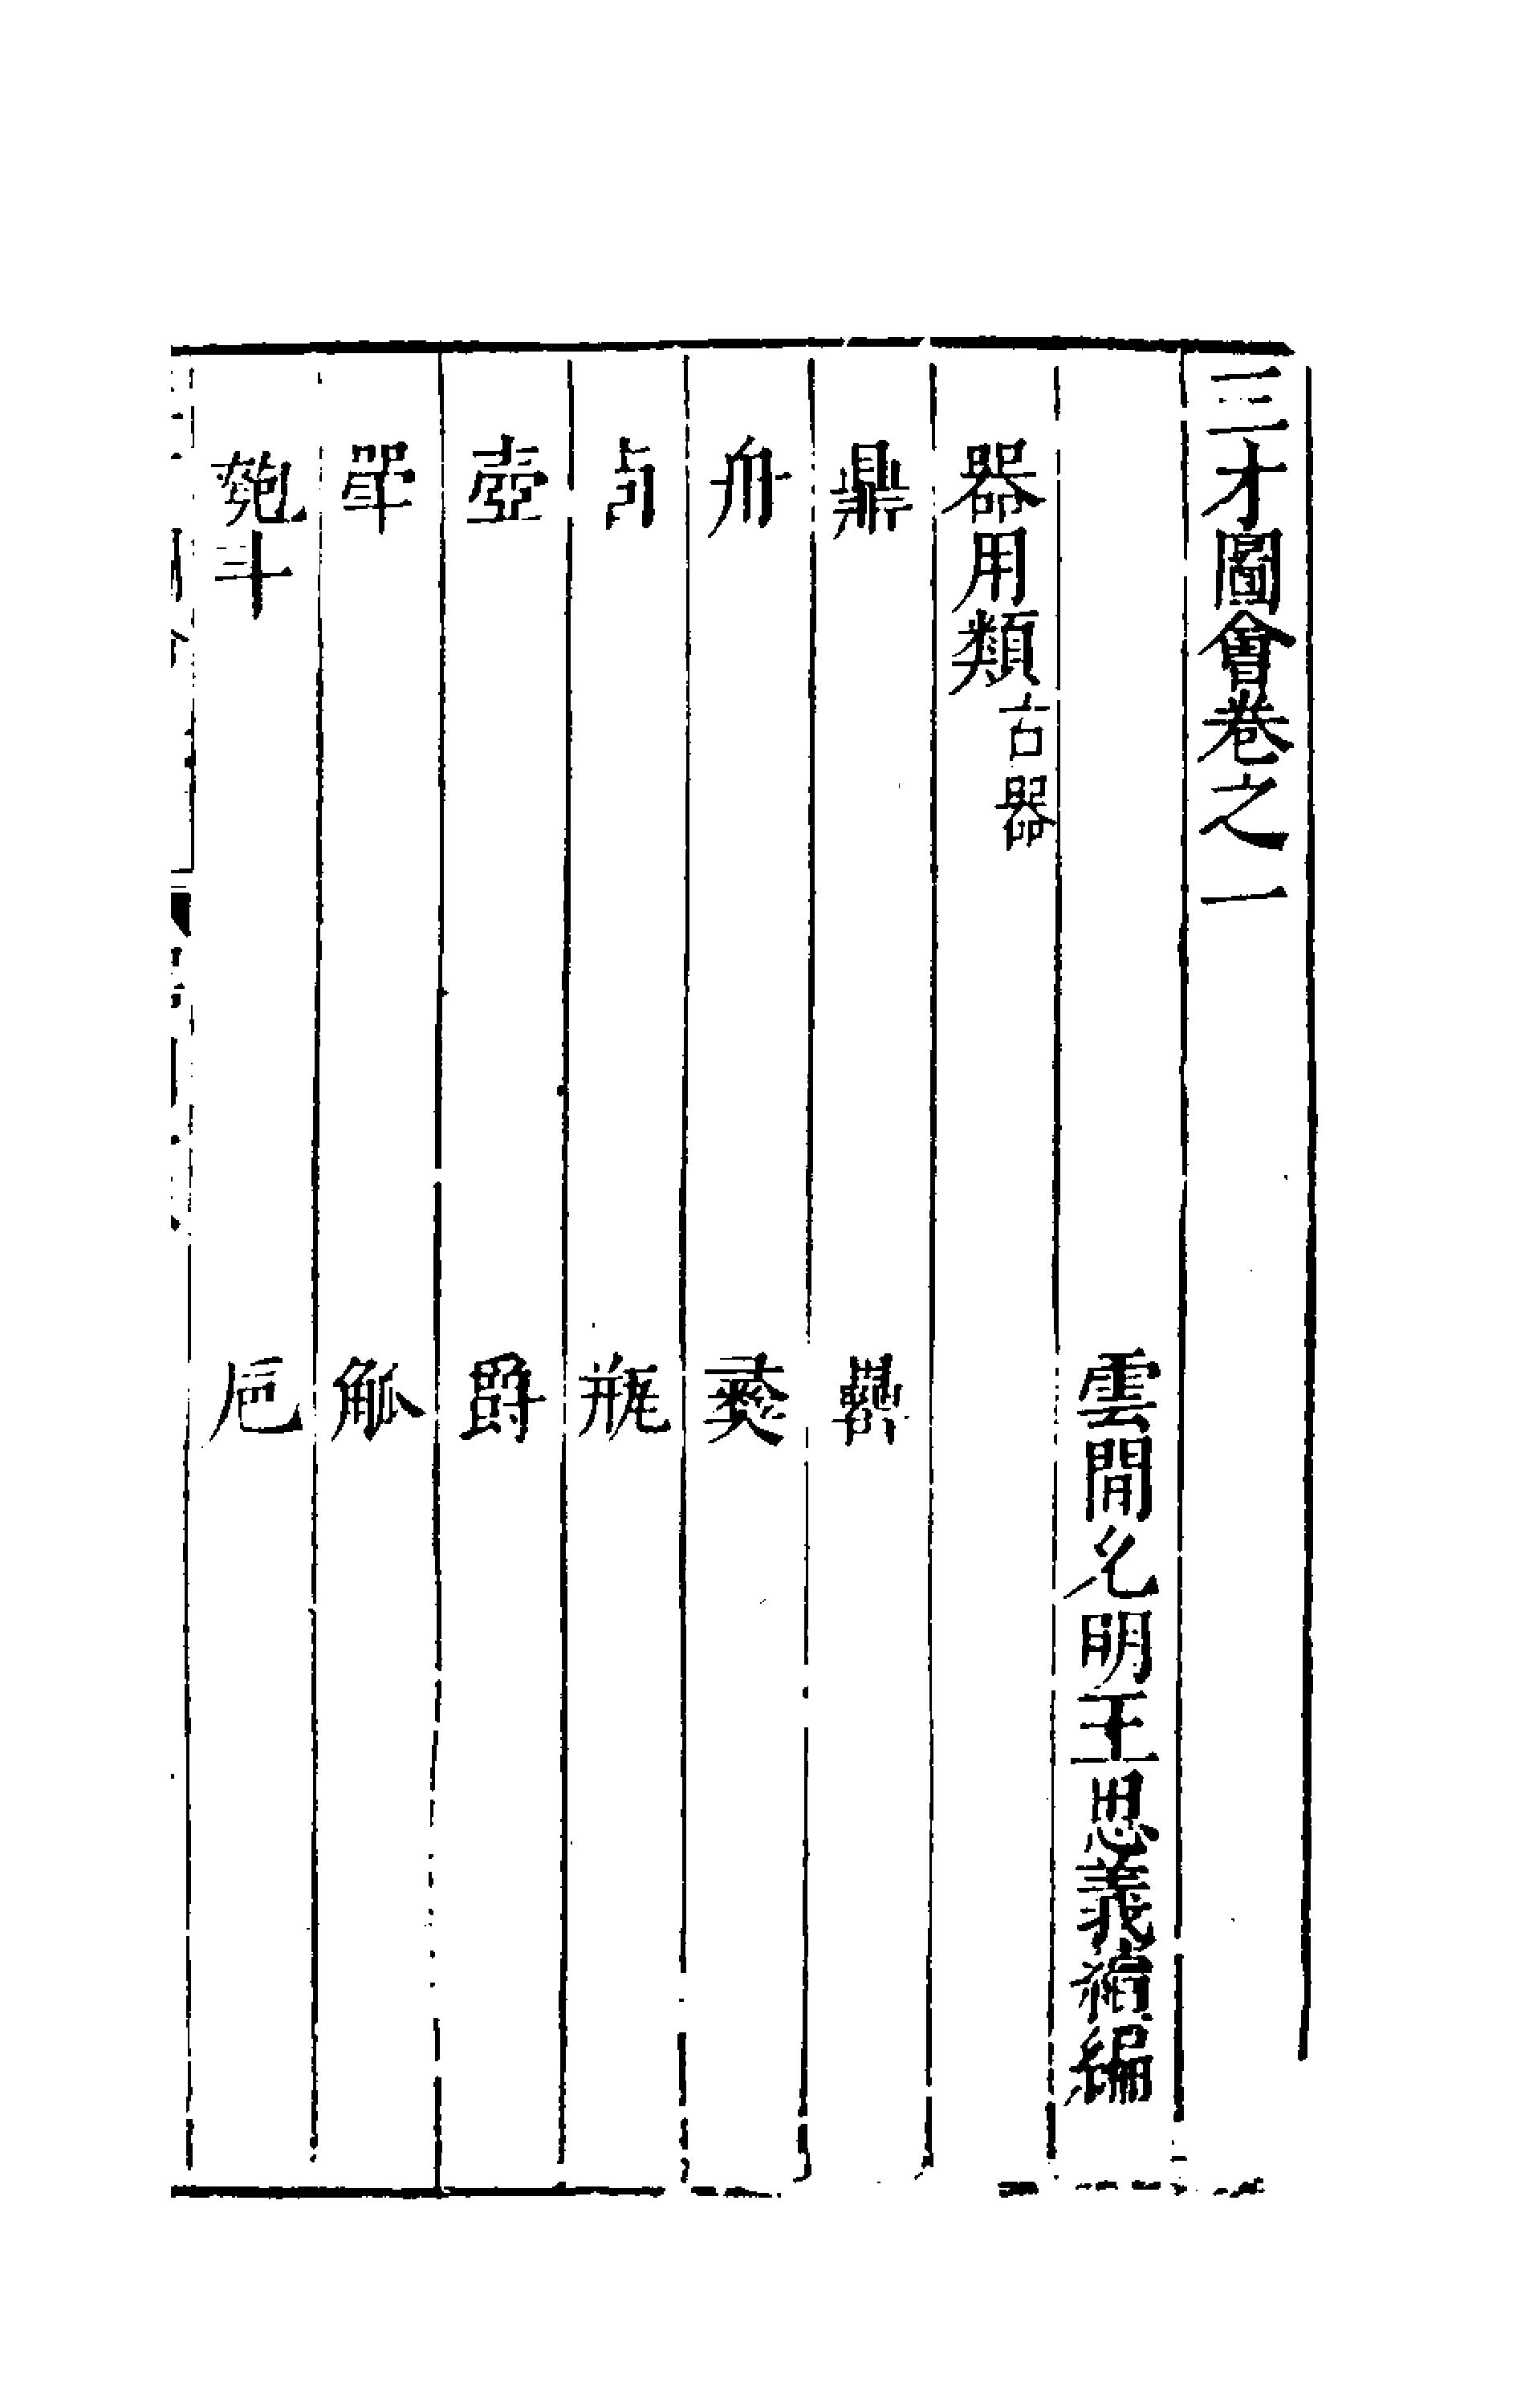 三才圖會卷之一
雲閒允明王思義續編
器用類古器
鼎
舟 彝
卣 瓶
壺 爵
斝 觚
匏斗 卮